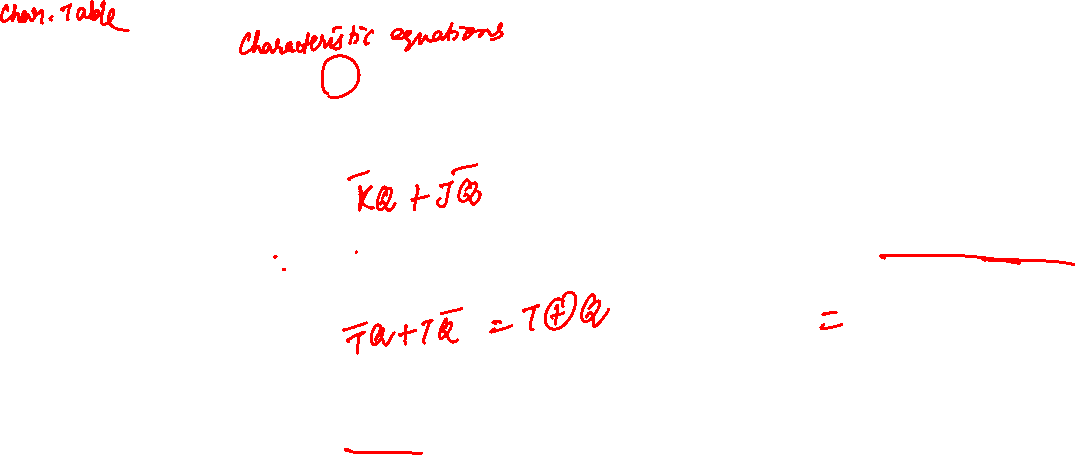 Char. Table
Characteristic equations
K̅Q + JQ̅
T̅Q + TQ̅ = T ⊕ Q =